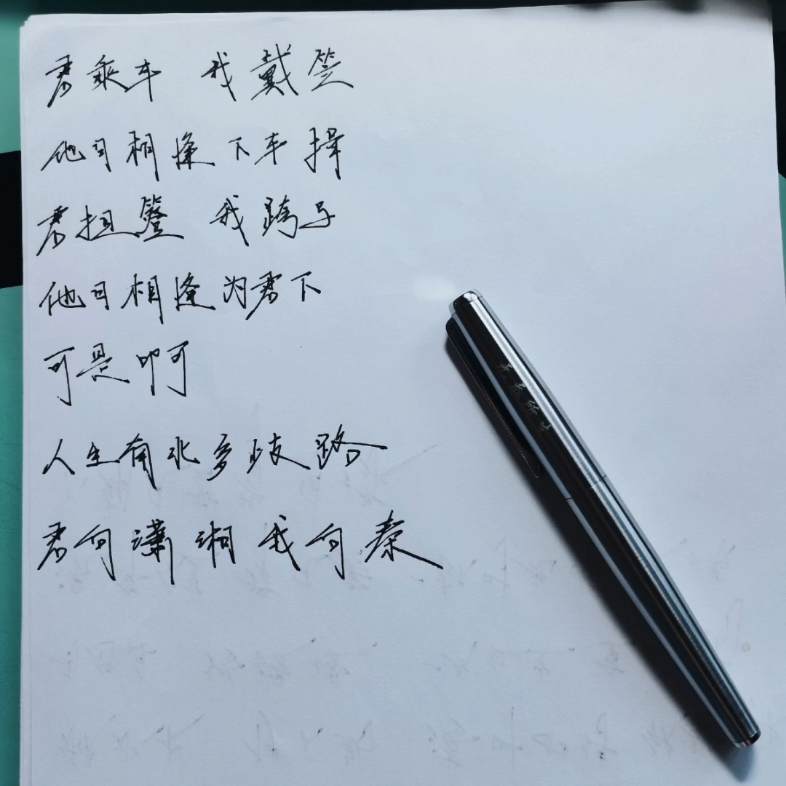 君乘车 我戴笠
他日相逢下车揖
君担簦 我跨马
他日相逢为君下
可是啊
人生南北多歧路
君向潇湘我向秦